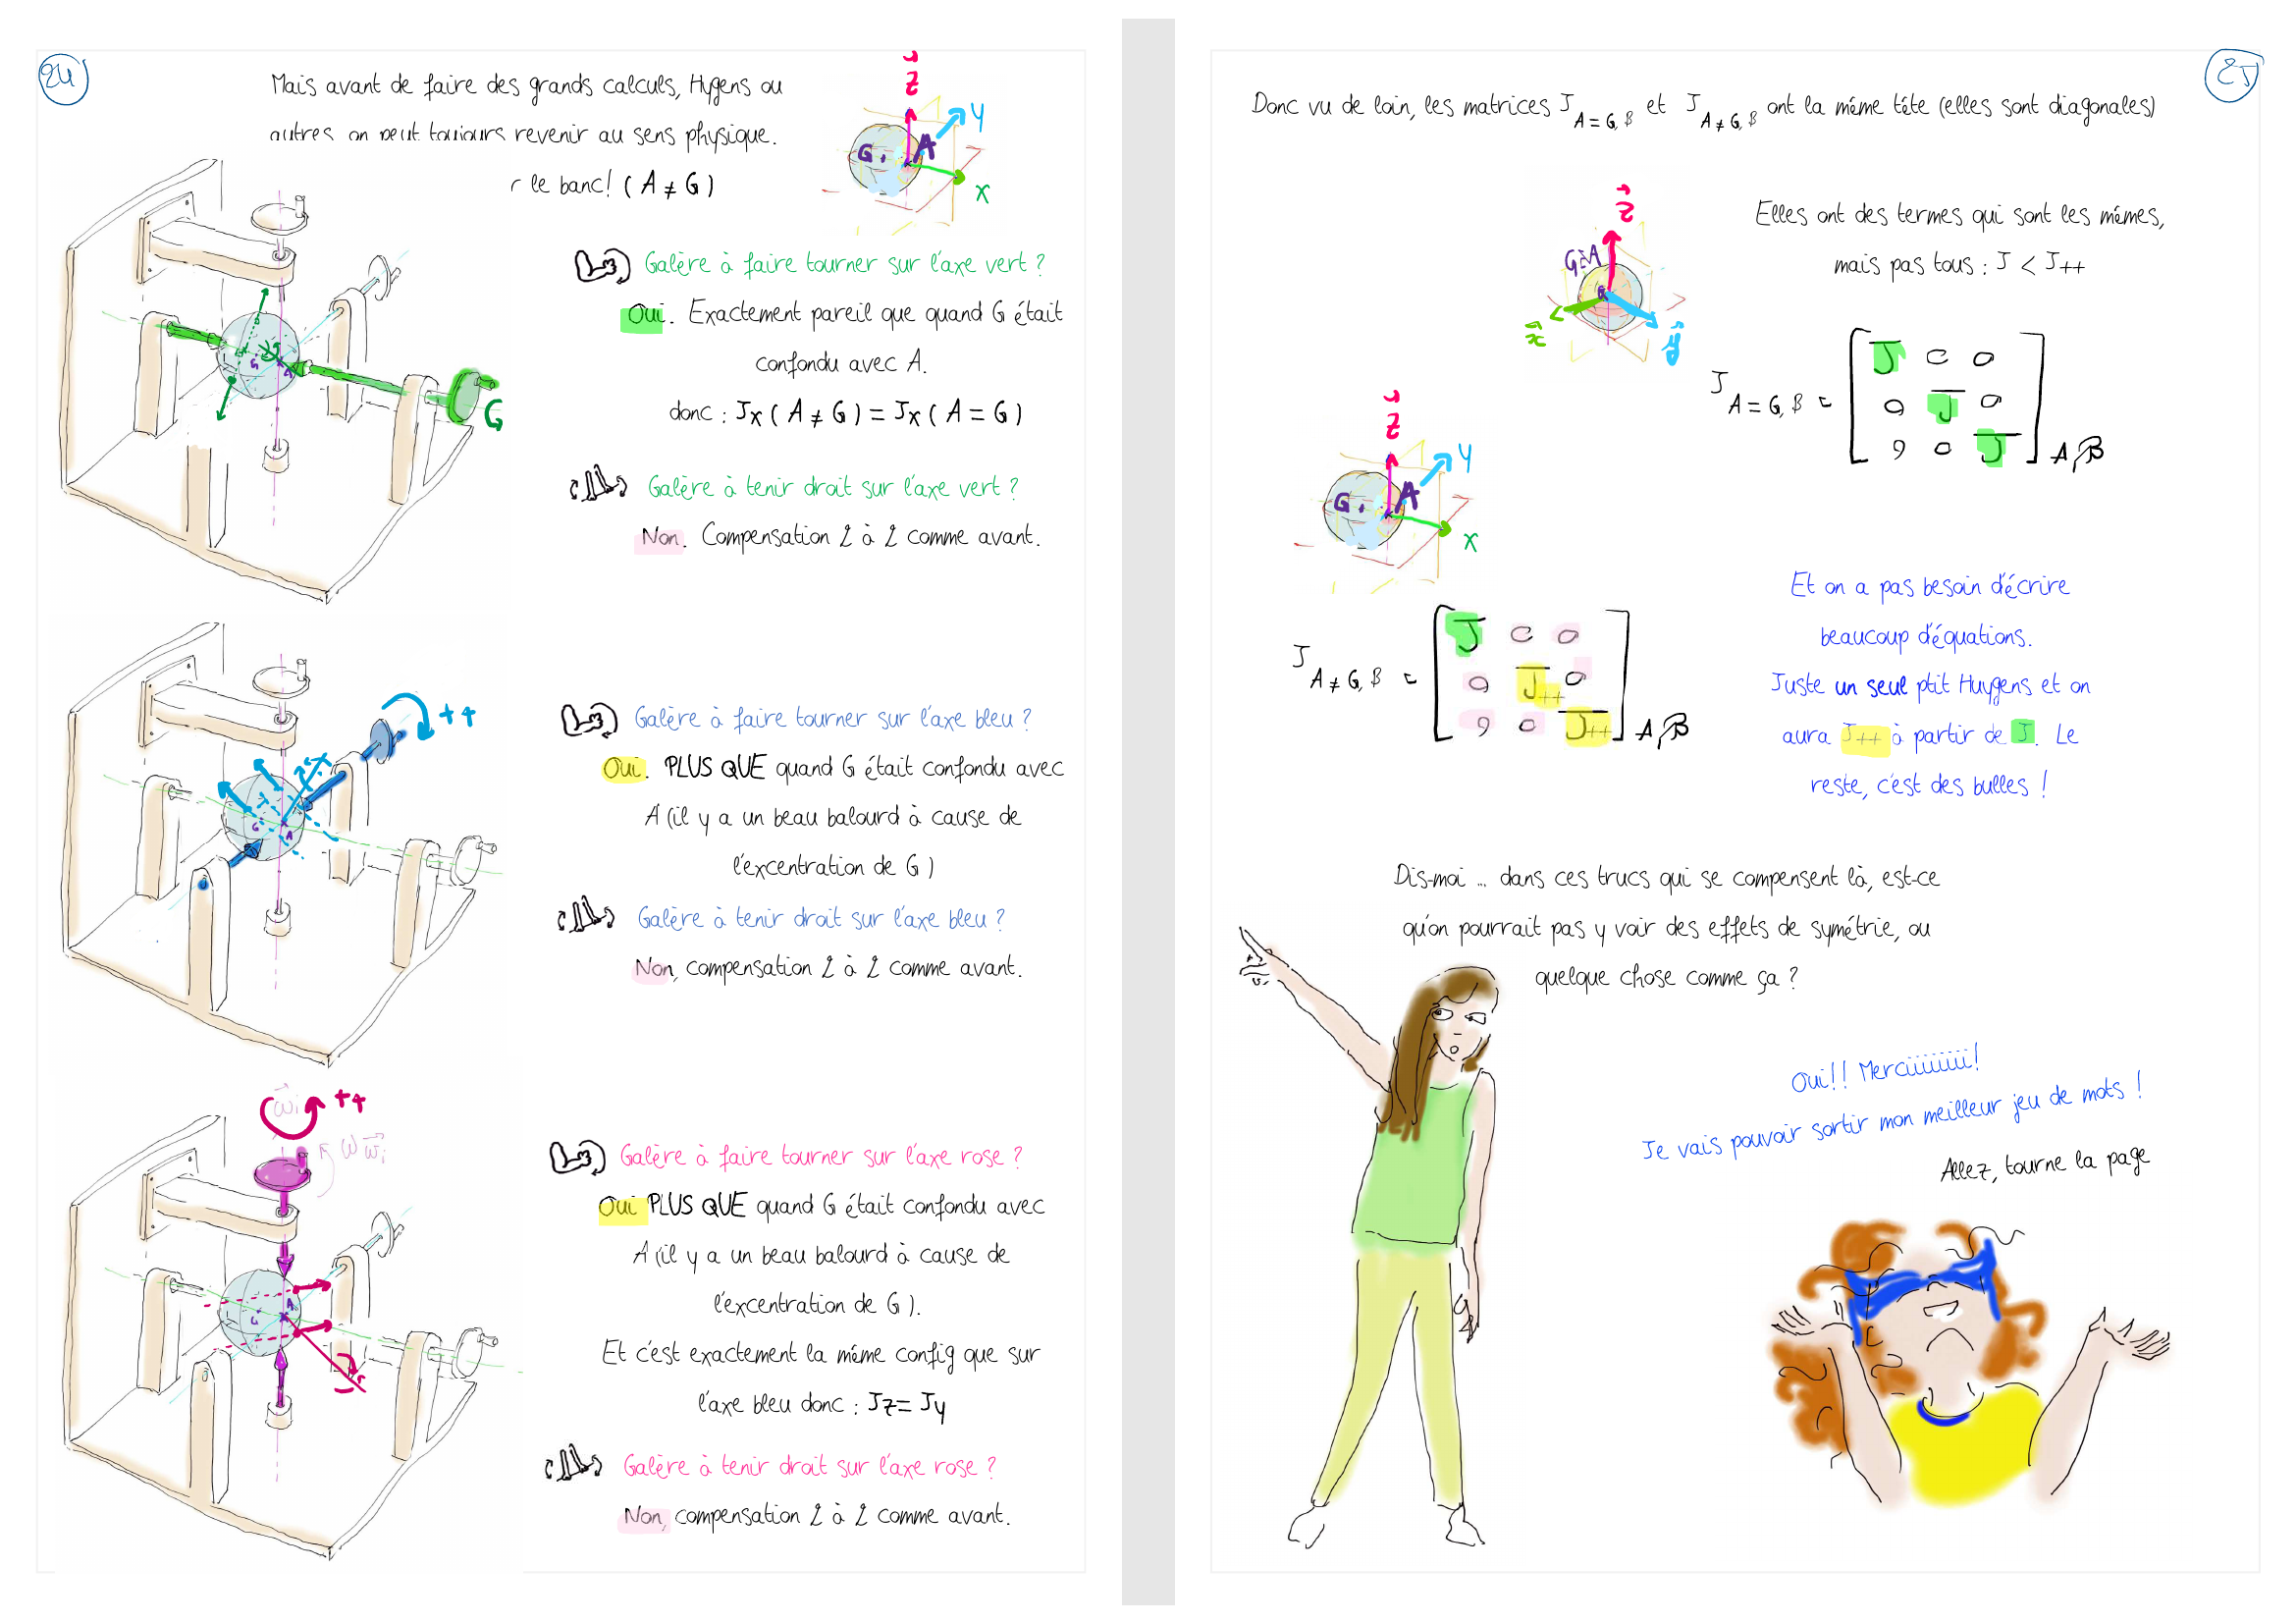 24
Mais avant de faire des grands calculs, Hygens ou
autres on peut toujours revenir au sens physique.
r le banc! ( A ≠ G )
Z
Y
G
A
X
Galère à faire tourner sur l'axe vert ?
Oui. Exactement pareil que quand G était
confondu avec A.
donc : Jx ( A ≠ G ) = Jx ( A = G )
Galère à tenir droit sur l'axe vert ?
Non. Compensation 2 à 2 comme avant.
G
A
++
Galère à faire tourner sur l'axe bleu ?
Oui. PLUS QUE quand G était confondu avec
A (il y a un beau balourd à cause de
l'excentration de G )
Galère à tenir droit sur l'axe bleu ?
Non, compensation 2 à 2 comme avant.
G
A
++
ω
Galère à faire tourner sur l'axe rose ?
Oui PLUS QUE quand G était confondu avec
A (il y a un beau balourd à cause de
l'excentration de G ).
Et c'est exactement la même config que sur
l'axe bleu donc : Jz = Jy
Galère à tenir droit sur l'axe rose ?
Non, compensation 2 à 2 comme avant.
G
A
25
Donc vu de loin, les matrices J A = G, B et J A ≠ G, B ont la même tête (elles sont diagonales)
Elles ont des termes qui sont les mêmes,
mais pas tous : J < J++
z
G=A
x
y
J A = G, B = [ J 0 0
0 J 0
0 0 J ] A,B
Z
Y
G
A
X
J A ≠ G, B = [ J 0 0
0 J++ 0
0 0 J++ ] A,B
Et on a pas besoin d'écrire
beaucoup d'équations.
Juste un seul ptit Huygens et on
aura J++ à partir de J. Le
reste, c'est des bulles !
Dis-moi ... dans ces trucs qui se compensent là, est-ce
qu'on pourrait pas y voir des effets de symétrie, ou
quelque chose comme ça ?
Oui!! Merciiiiiiiii!
Je vais pouvoir sortir mon meilleur jeu de mots !
Allez, tourne la page